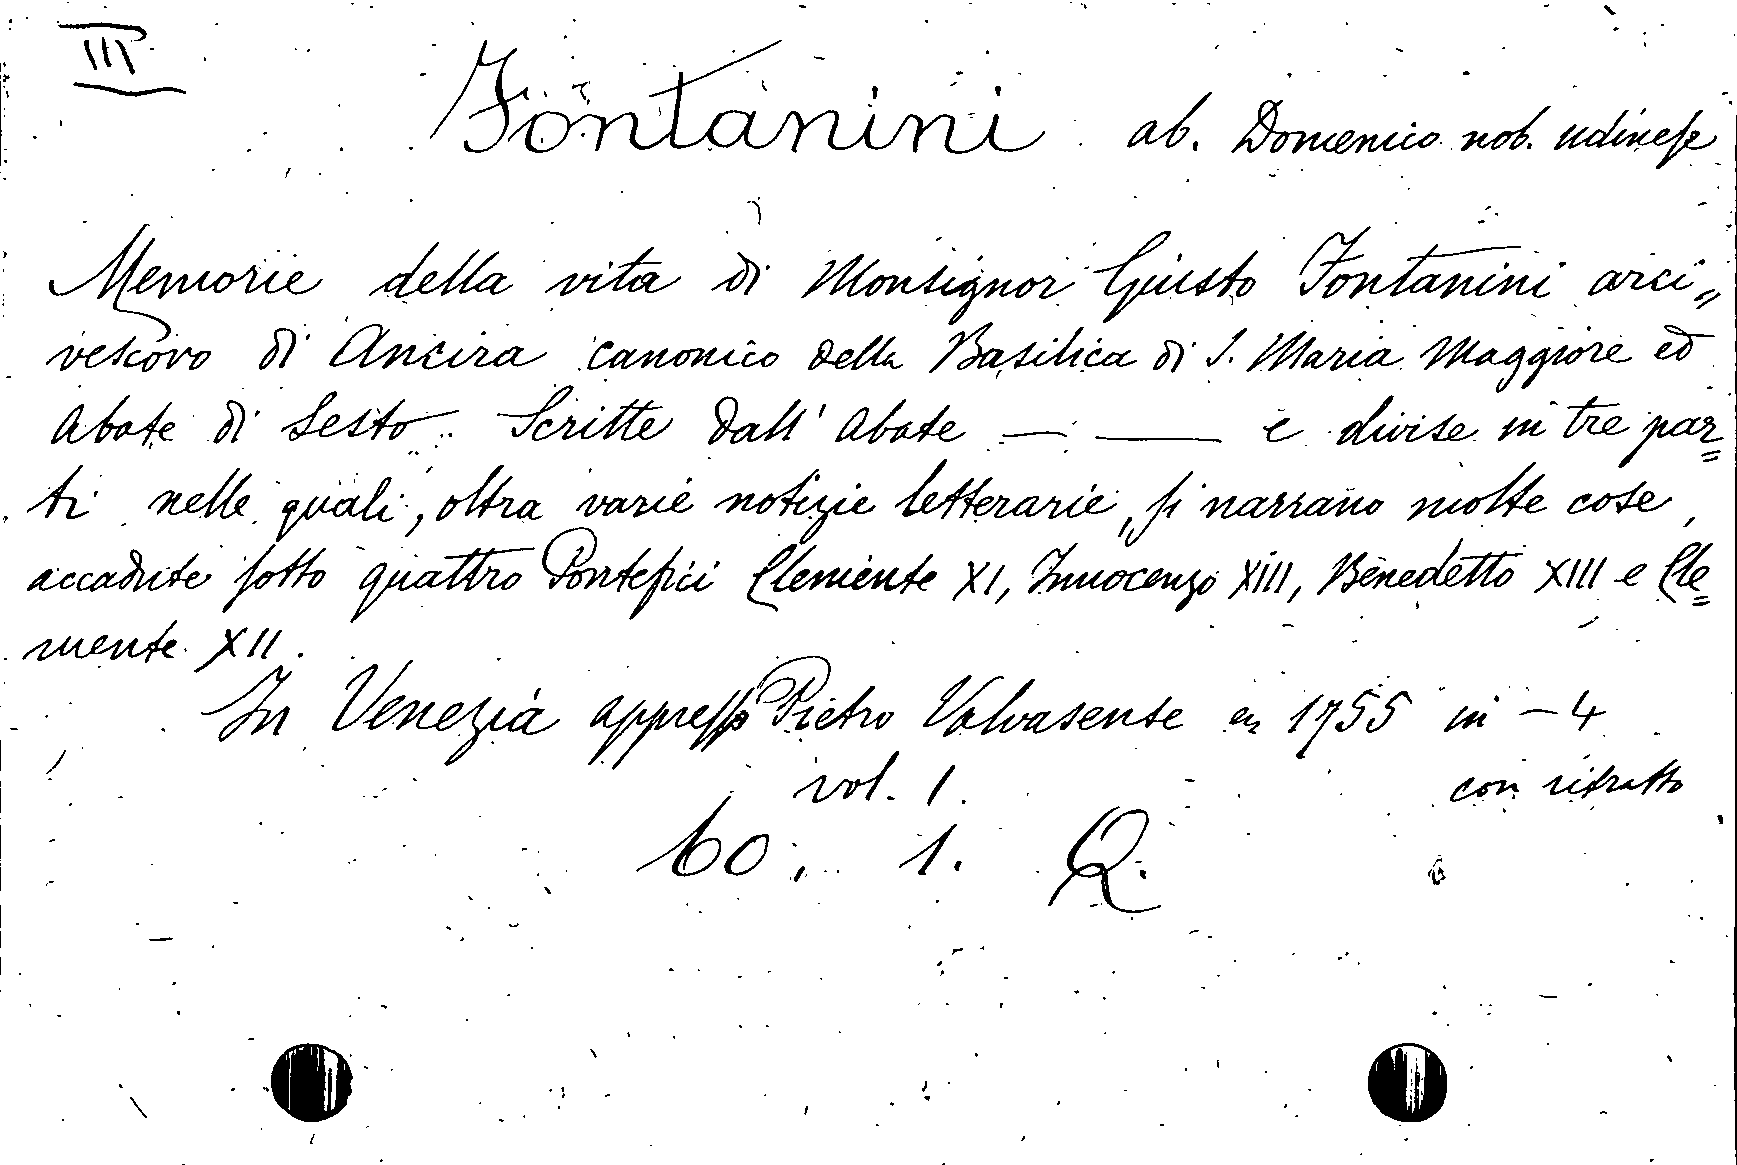 III
Fontanini ab. Domenico nob. udinese
Memorie della vita di Monsignor Giusto Fontanini arci„
vescovo di Ancira canonico della Basilica di S. Maria Maggiore ed
Abate di Sesto. Scritte dall' Abate — — e divise in tre par=
ti nelle quali, oltra varie notizie letterarie, si narrano molte cose,
accadute sotto quattro Pontefici Clemente XI, Innocenzo XIII, Benedetto XIII e Cle=
mente XII.
In Venezia appresso Pietro Valvasense 1755 in-4
vol. 1. con ritratto
60. 1. Q.